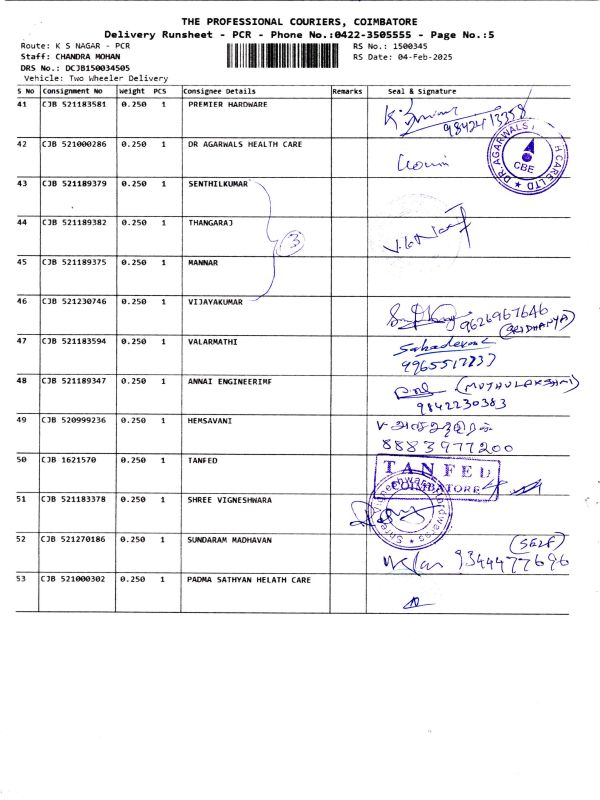 THE PROFESSIONAL COURIERS, COIMBATORE
Delivery Runsheet - PCR - Phone No.:0422-3505555 - Page No.:5
Route: K S NAGAR - PCR
RS No.: 1500345
Staff: CHANDRA MOHAN
RS Date: 04-Feb-2025
DRS No.: DCJB150034505
Vehicle: Two Wheeler Delivery
S No Consignment No Weight PCS Consignee Details Remarks Seal & Signature
41 CJB 521183581 0.250 1 PREMIER HARDWARE
9842413358
42 CJB 521000286 0.250 1 DR AGARWALS HEALTH CARE
DR.AGARWALS H CARE LTD
CBE
43 CJB 521189379 0.250 1 SENTHILKUMAR
44 CJB 521189382 0.250 1 THANGARAJ
3
45 CJB 521189375 0.250 1 MANNAR
46 CJB 521230746 0.250 1 VIJAYAKUMAR
9626967646
(SRIDHANYA)
47 CJB 521183594 0.250 1 VALARMATHI
Sahadevan
9965517737
48 CJB 521189347 0.250 1 ANNAI ENGINEERIMF
(MUTHULAKSHMI)
9842230383
49 CJB 520999236 0.250 1 HEMSAVANI
8883977200
50 CJB 1621570 0.250 1 TANFED
TANFED
COIMBATORE
51 CJB 521183378 0.250 1 SHREE VIGNESHWARA
Shree Vigneshwara Hardwares
52 CJB 521270186 0.250 1 SUNDARAM MADHAVAN
(SELF)
9344477696
53 CJB 521000302 0.250 1 PADMA SATHYAN HELATH CARE